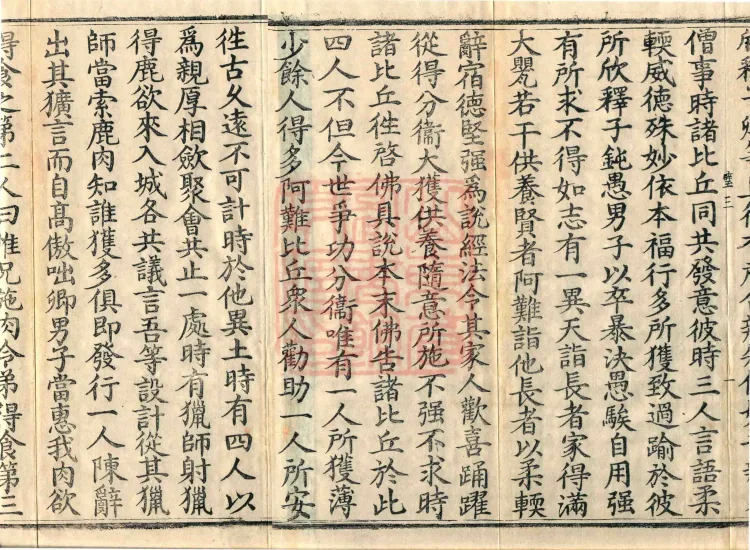 僧事時諸比丘同共發意彼時三人言語柔
輭威德殊妙依本福行多所獲致過踰於彼
所欣釋子鈍愚男子以卒暴決愚騃自用强
有所求不得如志有一異天詣長者家得滿
大甖若干供養賢者阿難詣他長者以柔輭
辭宿德堅强爲說經法令其家人歡喜踊躍
從得分衞大獲供養隨意所施不强不求時
諸比丘徃啓佛具說本末佛告諸比丘於此
四人不但今世爭功分衞唯有一人所獲薄
少餘人得多阿難比丘衆人勸助一人所安
徃古久遠不可計時於他異土時有四人以
爲親厚相歛聚會共止一處時有獵師射獵
得鹿欲來入城各共議言吾等設計從其獵
師當索鹿肉知誰獲多俱即發行一人陳辭
出其獷言而自髙傲咄卿男子當惠我肉欲
得食之第二人曰唯兄施肉令弟得食第三